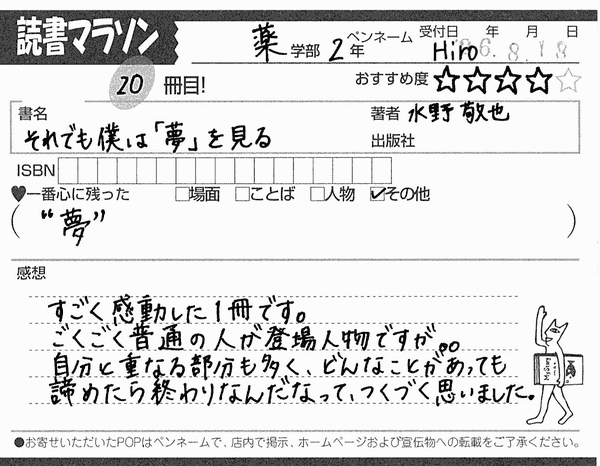 読書マラソン
薬 学部 2年 ペンネーム Hiro 受付日 年 月 日
6. 8. 18
20 冊目! おすすめ度 ★★★★☆
書名 著者 水野 敬也
それでも僕は「夢」を見る 出版社
ISBN
♥一番心に残った □場面 □ことば □人物 ☑その他
( “夢” )
感想
すごく感動した1冊です。
ごくごく普通の人が登場人物ですが。。
自分と重なる部分も多く、どんなことがあっても
諦めたら終わりなんだなって、つくづく思いました。
●お寄せいただいたPOPはペンネームで、店内で掲示、ホームページおよび宣伝物への転載をご了承ください。